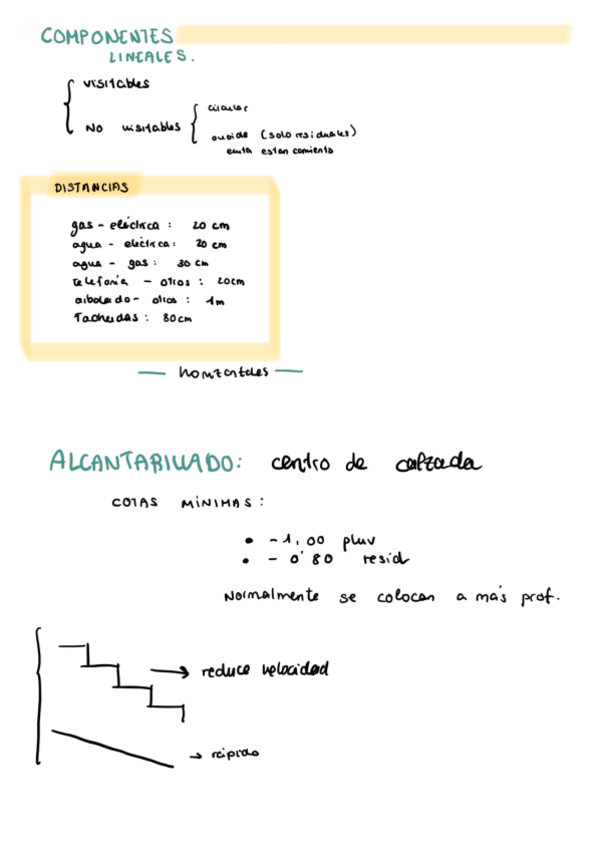 COMPONENTES
LINEALES.
visitables
No visitables
circular
ovoide (solo residuales)
evita estancamiento
DISTANCIAS
gas - eléctrica : 20 cm
agua - eléctrica: 20 cm
agua - gas : 30 cm
telefonía - otros : 20cm
arbolado - otros : 1m
Fachadas : 80cm
— horizontales —
ALCANTARILLADO: centro de calzada
COTAS MÍNIMAS :
• -1,00 pluv
• - 0'80 resid
Normalmente se colocan a más prof.
→ reduce velocidad
→ rápido